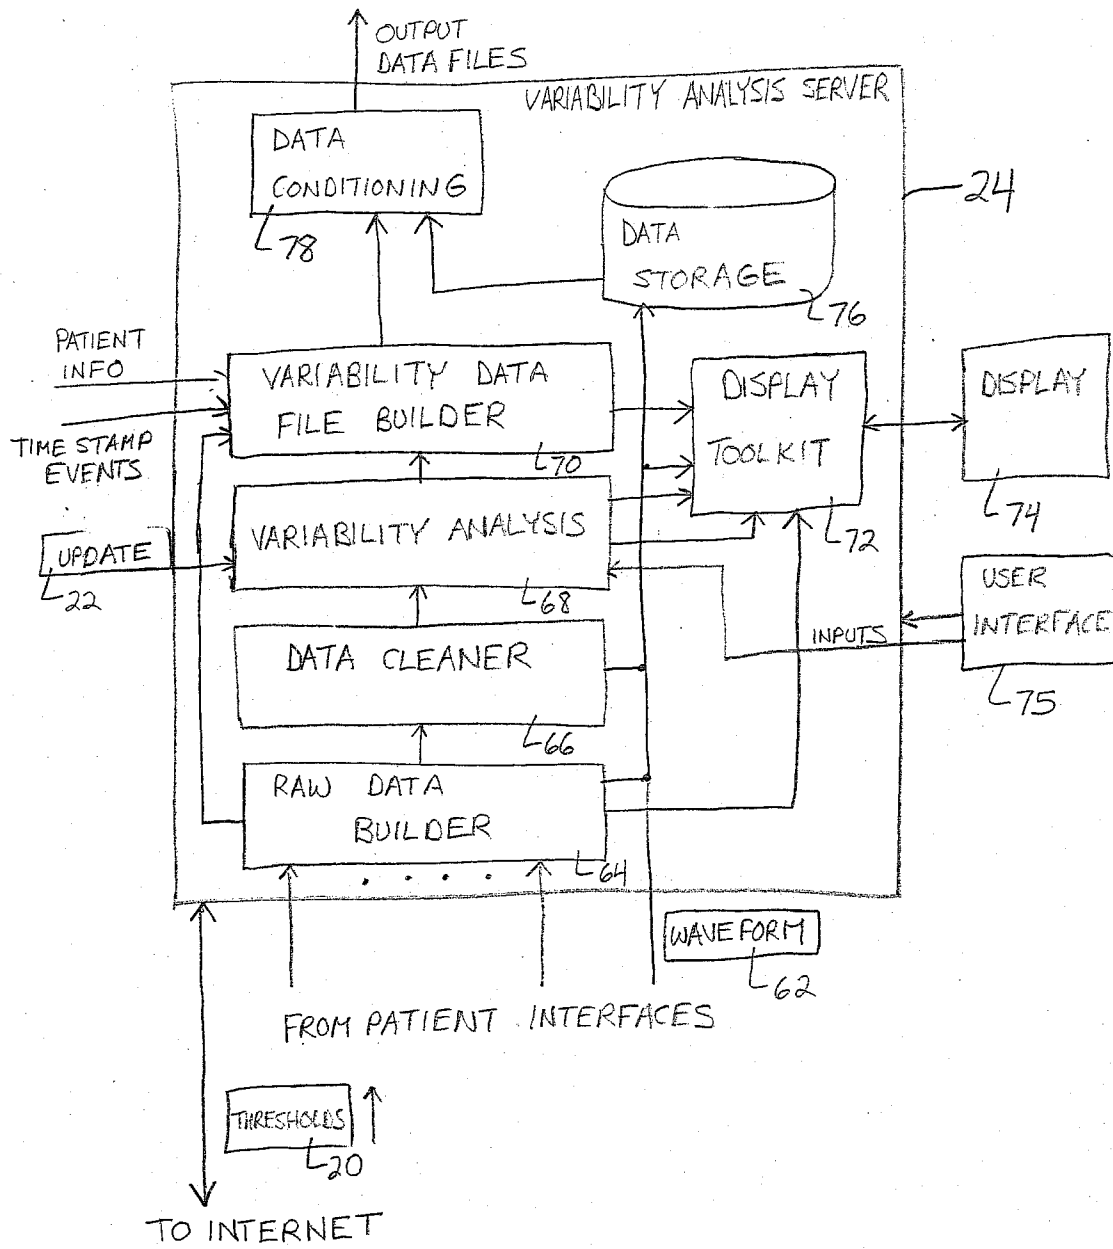 OUTPUT
DATA FILES
VARIABILITY ANALYSIS SERVER
DATA
CONDITIONING
78
24
DATA
STORAGE
76
PATIENT
INFO
VARIABILITY DATA
FILE BUILDER
70
DISPLAY
TOOLKIT
72
DISPLAY
74
TIME STAMP
EVENTS
UPDATE
22
VARIABILITY ANALYSIS
68
USER
INTERFACE
75
INPUTS
DATA CLEANER
66
RAW DATA
BUILDER
64
WAVEFORM
62
FROM PATIENT INTERFACES
THRESHOLDS
20
TO INTERNET